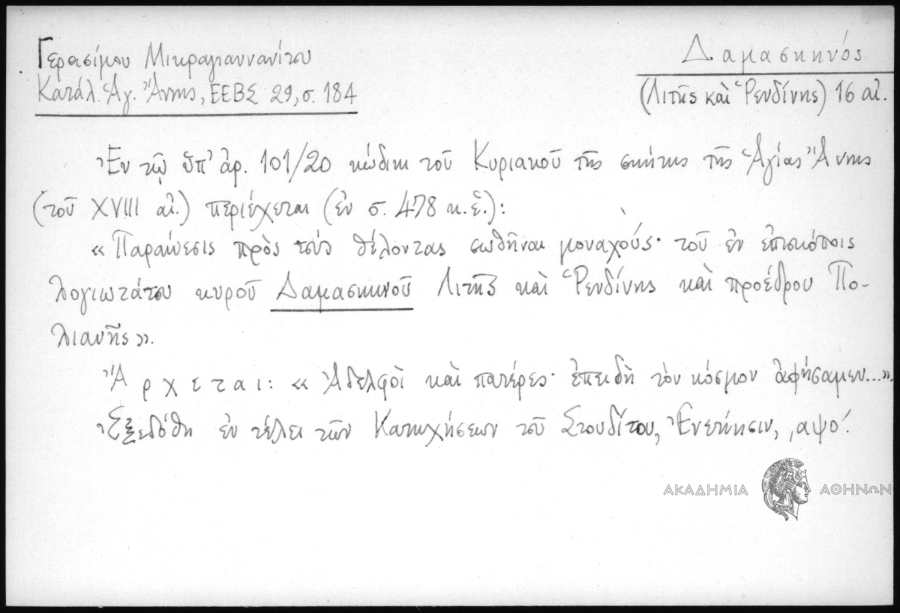 Γερασίμου Μικραγιαννανίτου
Κατάλ. Ἁγ. Ἄννης, ΕΕΒΣ 29, σ. 184
Δαμασκηνός
(Λιτῆς καὶ Ῥενδίνης) 16 αἰ.
Ἐν τῷ ὑπ' ἀρ. 101/20 κώδικι τοῦ Κυριακοῦ τῆς σκήτης τῆς Ἁγίας Ἄννης
(τοῦ XVIII αἰ.) περιέχεται (ἐν σ. 478 κ.ἑ.):
« Παραίνεσις πρὸς τοὺς θέλοντας σωθῆναι μοναχούς· τοῦ ἐν ἐπισκόποις
λογιωτάτου κυροῦ Δαμασκηνοῦ Λιτῆς καὶ Ῥενδίνης καὶ προέδρου Πο-
λιανῆς».
Ἄρχεται: « Ἀδελφοὶ καὶ πατέρες· ἐπειδὴ τὸν κόσμον ἀφήσαμεν...».
Ἐξεδόθη ἐν τέλει τῶν Κατηχήσεων τοῦ Στουδίτου, Ἐνετίησιν, ͵αψο΄.
ΑΚΑΔΗΜΙΑ ΑΘΗΝΩΝ